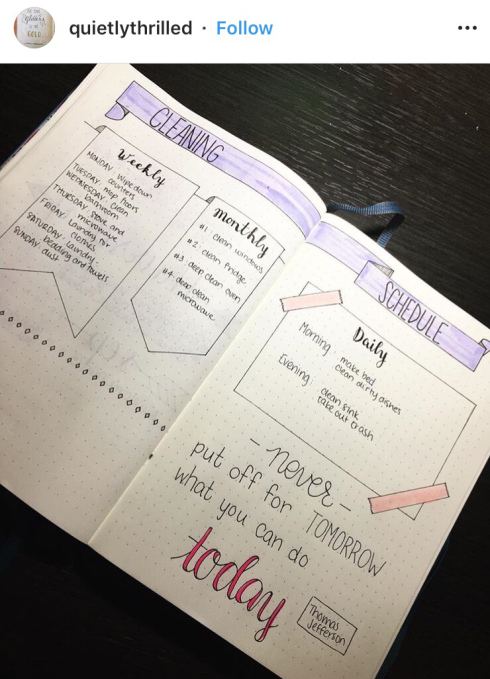 quietlythrilled · Follow
CLEANING
Weekly
MONDAY: Wipe down
counters
TUESDAY: Mop floors
WEDNESDAY: Clean
bathroom
THURSDAY: Stove and
microwave
FRIDAY: Laundry for
clothes
SATURDAY: Laundry,
bedding and towels
SUNDAY: dust
Monthly
#1: clean windows
#2: clean fridge
#3: deep clean oven
#4: deep clean
microwave
SCHEDULE
Daily
Morning: make bed
clean dirty dishes
Evening: clean sink
take out trash
- never -
put off for TOMORROW
what you can do
today
Thomas
Jefferson